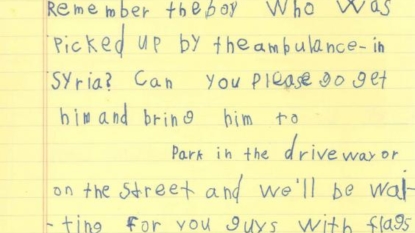 Remember the boy who was
picked up by the ambulance in
Syria? Can you please go get
him and bring him to
Park in the driveway or
on the street and we'll be wai-
-ting for you guys with flags